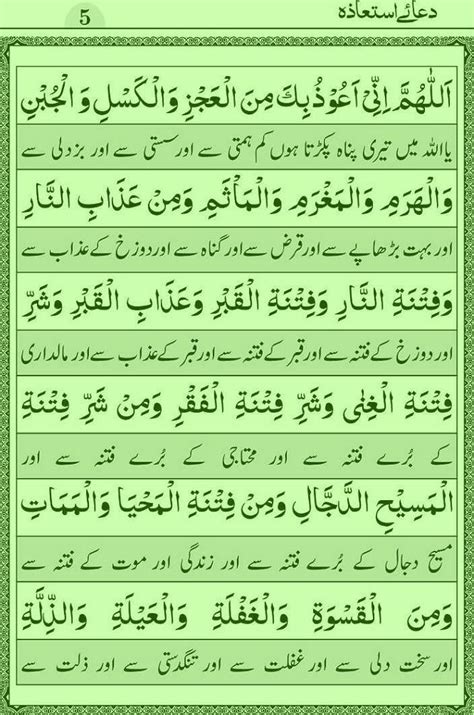 دعائے استعاذہ
5
اَللّٰهُمَّ اِنِّیْ اَعُوْذُ بِكَ مِنَ الْعَجْزِ وَالْكَسَلِ وَ الْجُبْنِ
یا اللہ میں تیری پناہ پکڑتا ہوں کم ہمتی سے اور سستی سے اور بزدلی سے
وَالْهَرَمِ وَالْمَغْرَمِ وَالْمَاْثَمِ وَمِنْ عَذَابِ النَّارِ
اور بہت بڑھاپے سے اور قرض سے اور گناہ سے اور دوزخ کے عذاب سے
وَفِتْنَةِ النَّارِ وَفِتْنَةِ الْقَبْرِ وَعَذَابِ الْقَبْرِ وَشَرِّ
اور دوزخ کے فتنہ سے اور قبر کے فتنہ سے اور قبر کے عذاب سے اور مالداری
فِتْنَةِ الْغِنٰی وَشَرِّ فِتْنَةِ الْفَقْرِ وَمِنْ شَرِّ فِتْنَةِ
کے بُرے فتنہ سے اور محتاجی کے بُرے فتنہ سے اور
الْمَسِیْحِ الدَّجَّالِ وَمِنْ فِتْنَةِ الْمَحْیَا وَالْمَمَاتِ
مسیح دجال کے بُرے فتنہ سے اور زندگی اور موت کے فتنہ سے
وَمِنَ الْقَسْوَةِ وَالْغَفْلَةِ وَالْعَیْلَةِ وَالذِّلَّةِ
اور سخت دلی سے اور غفلت سے اور تنگدستی سے اور ذلت سے